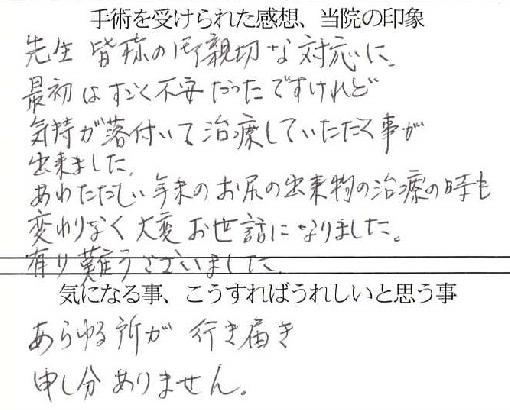 手術を受けられた感想、当院の印象
先生 皆様の御親切な対応に、
最初はすごく不安だったですけれど
気持が落付いて治療していただく事が
出来ました。
あわただしい年末のお尻の出来物の治療の時も
変わりなく大変お世話になりました。
有り難うございました。
気になる事、こうすればうれしいと思う事
あらゆる所が行き届き
申し分ありません。